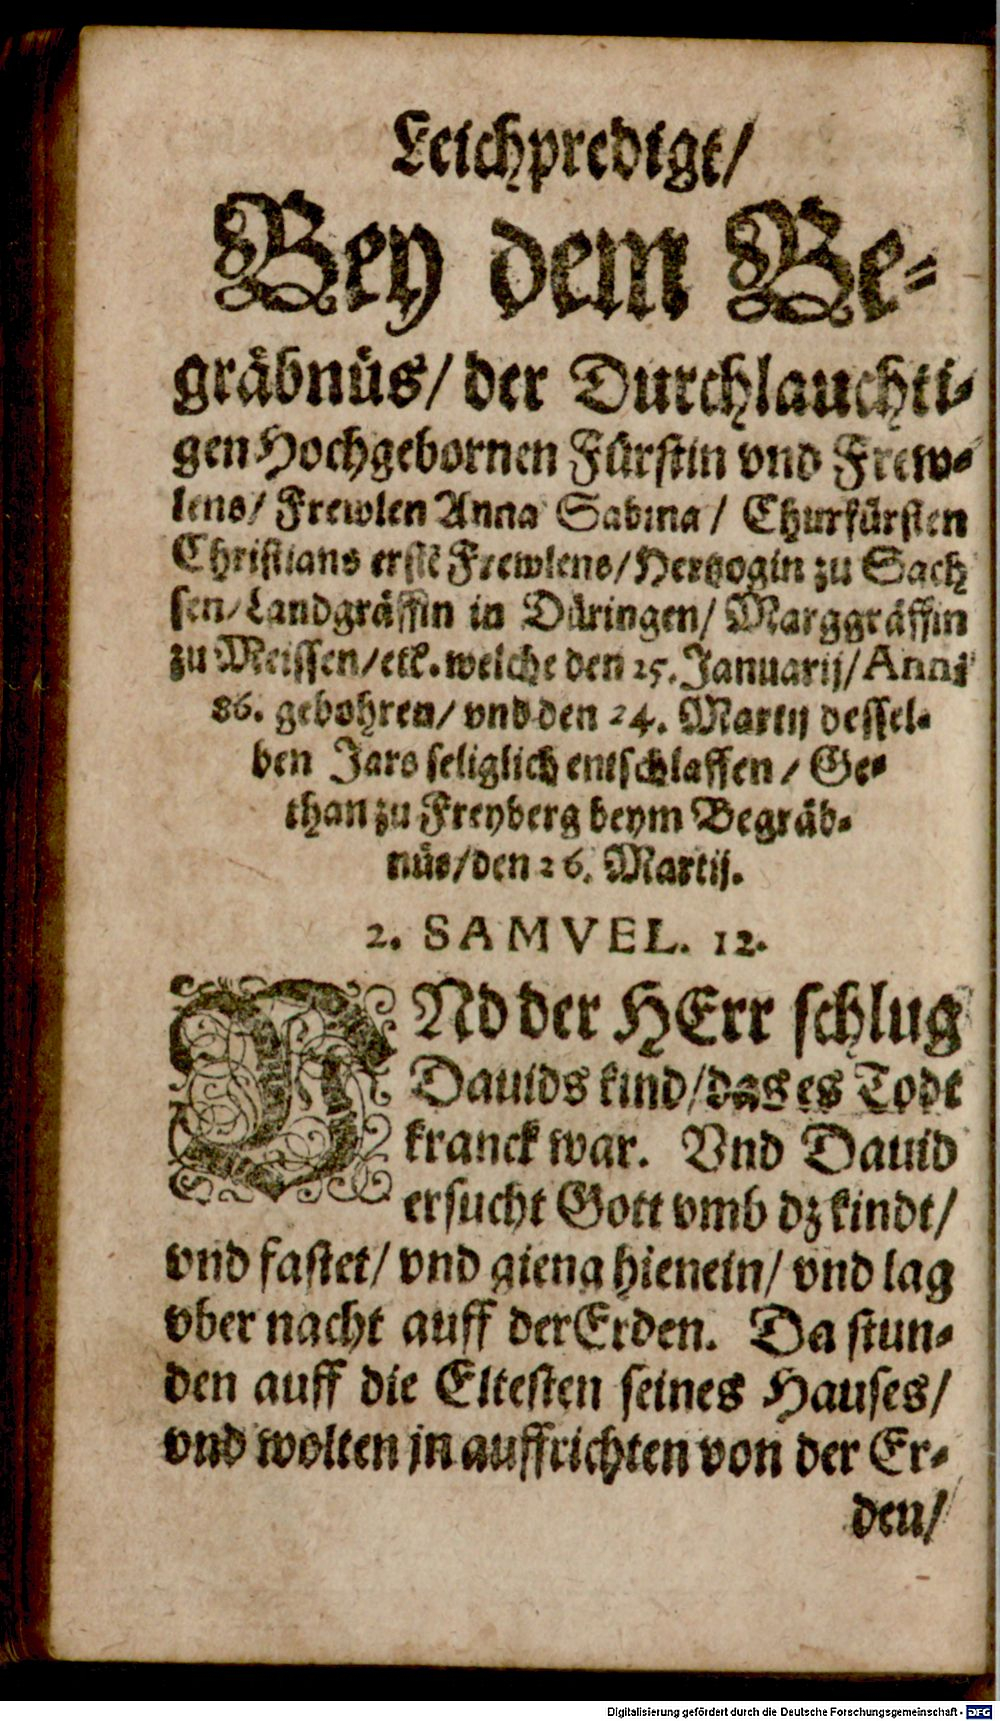 Leichpredigt/
Bey dem Be-
gräbnüs/ der Durchlauchti-
gen Hochgebornen Fürstin vnd Frew-
lens/ Frewlen Anna Sabina/ Churfürsten
Christians erste Frewlens/ Hertzogin zu Sach
sen/ Landgräffin in Düringen/ Marggräffin
zu Meissen/ etc. welche den 25. Januarij/ Anni
86. gebohren/ vnd den 24. Martij dessel-
ben Jars seliglich entschlaffen/ Ge-
than zu Freyberg beym Begräb-
nüs/ den 26. Martij.
2. SAMVEL. 12.
VNd der HErr schlug
Dauids kind/ das es Todt
kranck war. Vnd Dauid
ersucht Gott vmb dz kindt/
vnd fastet/ vnd gieng hienein/ vnd lag
vber nacht auff der Erden. Da stun-
den auff die Eltesten seines Hauses/
vnd wolten jn auffrichten von der Er-
den/
Digitalisierung gefördert durch die Deutsche Forschungsgemeinschaft - DFG